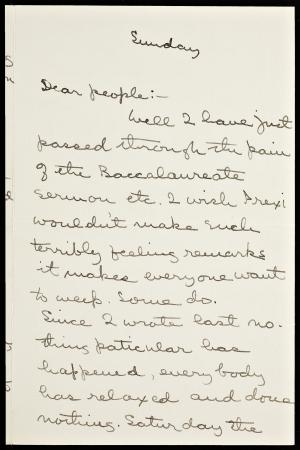 Sunday
Dear people:—
Well I have just
passed through the pain
of the Baccalaureate
Sermon etc. I wish Prexi
wouldn't make such
terribly feeling remarks
it makes everyone want
to weep. Some do.
Since I wrote last no-
thing paticular has
happened, every body
has relaxed and done
nothing. Saturday the